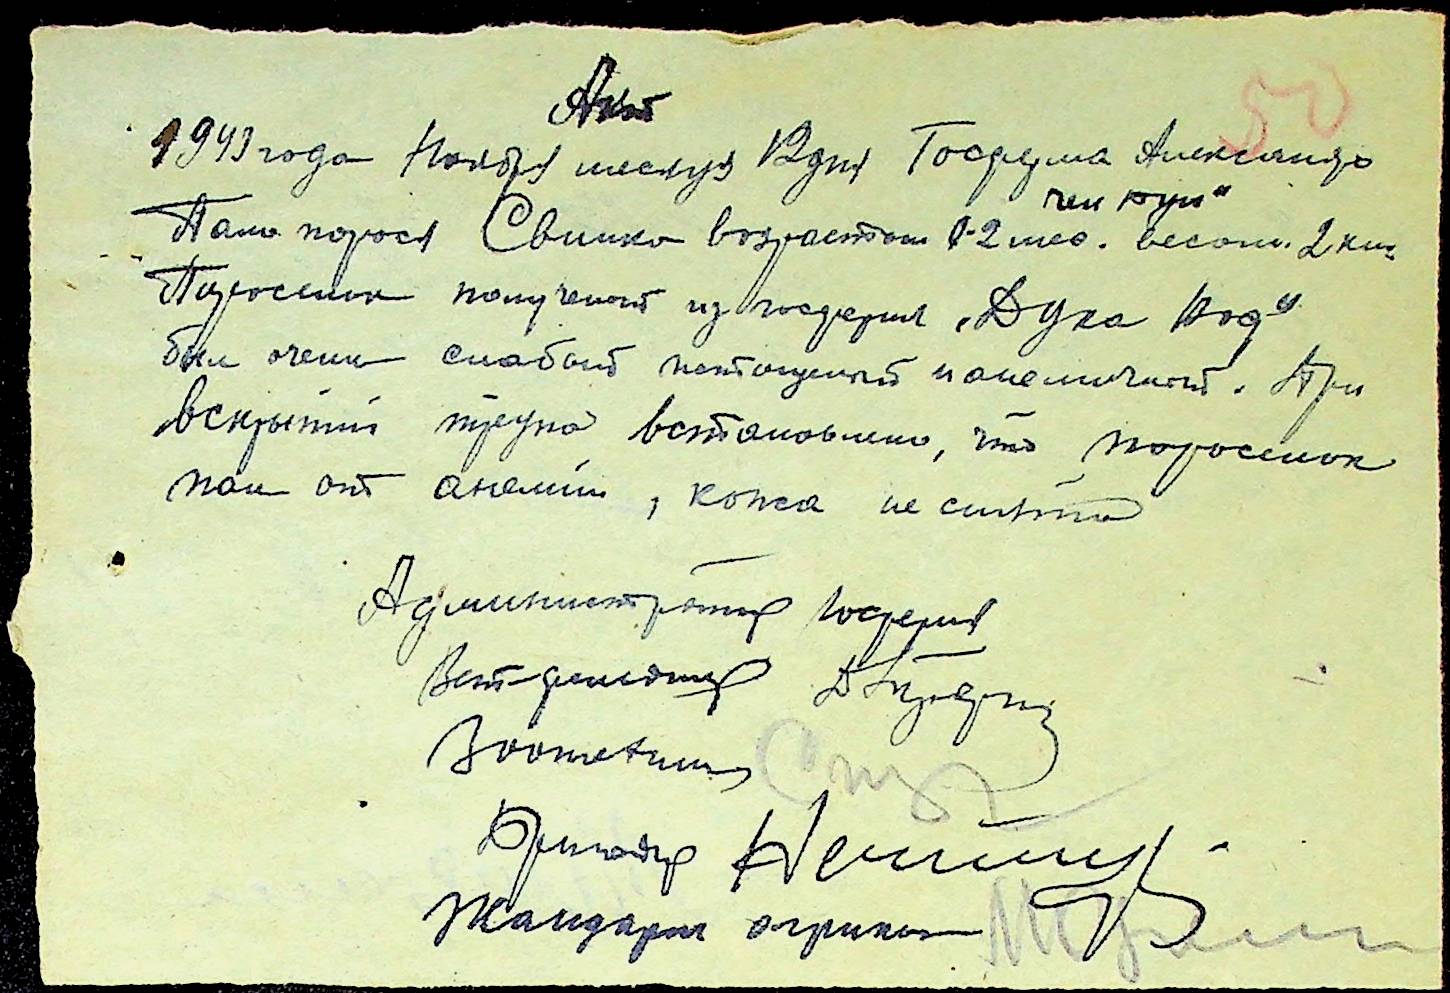 Акт
50
1943 года Ноября месяца 12 дня Госферма Александр
Пало порося Свинка возрастом 1-2 мес. весом 2 килг
Поросенок полученой из госферми „Дука Вод"
был очень слабый истощеный и анемичный. При
вскрытии трупа встановлено, что поросенок
пал от анемии, кожа не снята
Администратор Госферми
Вет-фельдшер
Зоотехник
Бригадир
Жандарм аграком